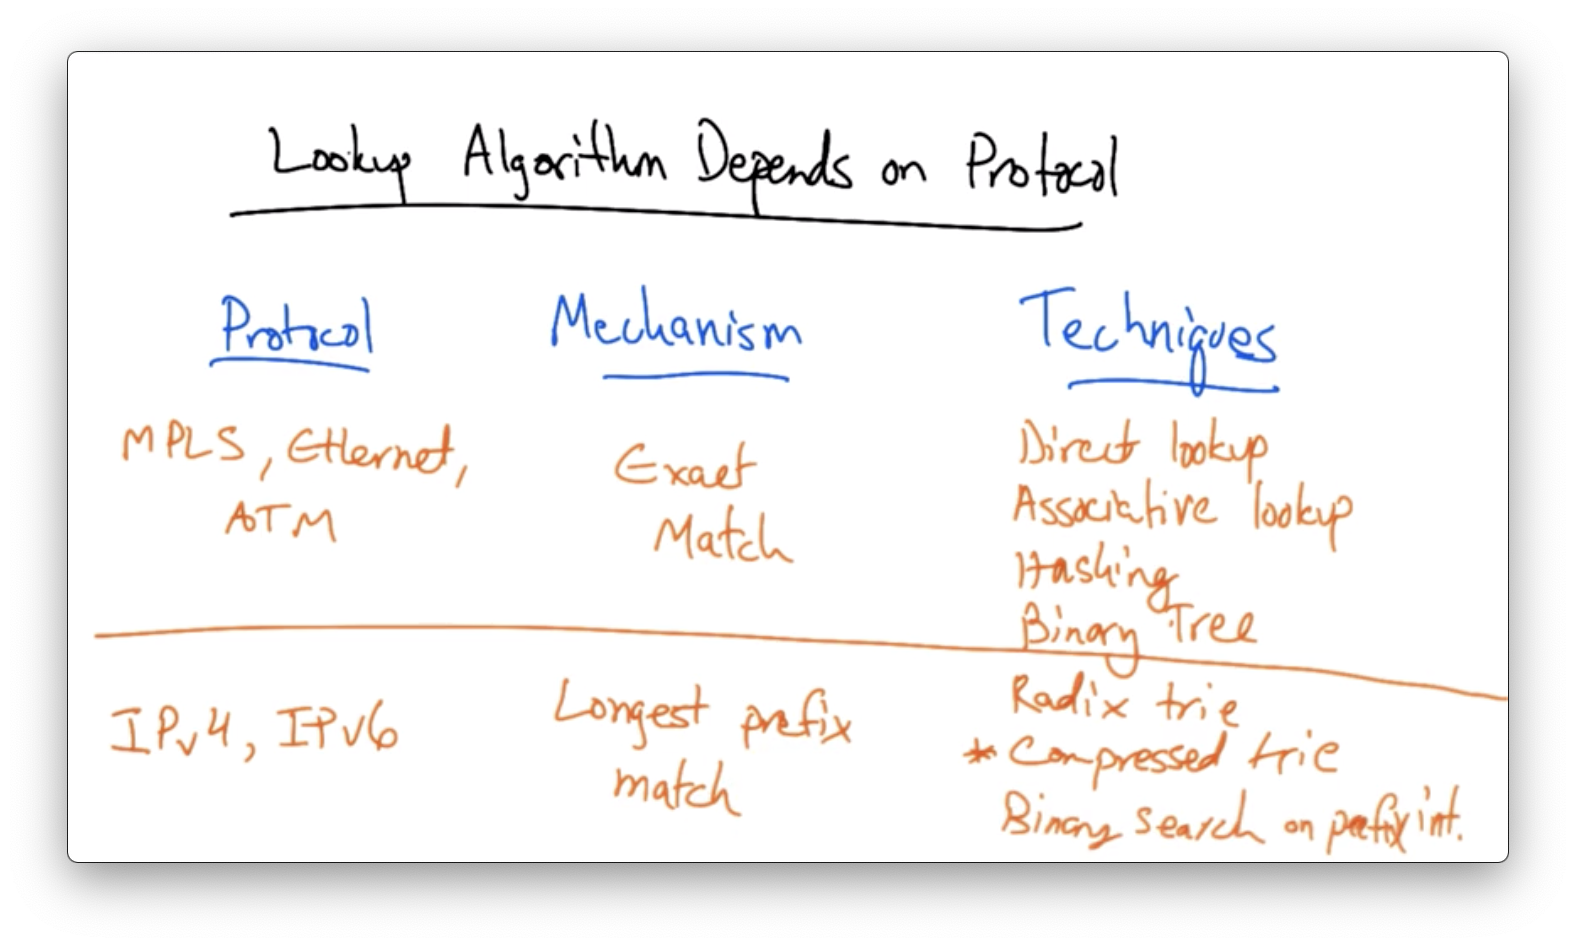 Lookup Algorithm Depends on Protocol
Protocol Mechanism Techniques
MPLS, Ethernet,
ATM
Exact
Match
Direct lookup
Associative lookup
Hashing
Binary Tree
IPv4, IPv6
Longest prefix
match
Radix trie
* Compressed trie
Binary search on prefix int.